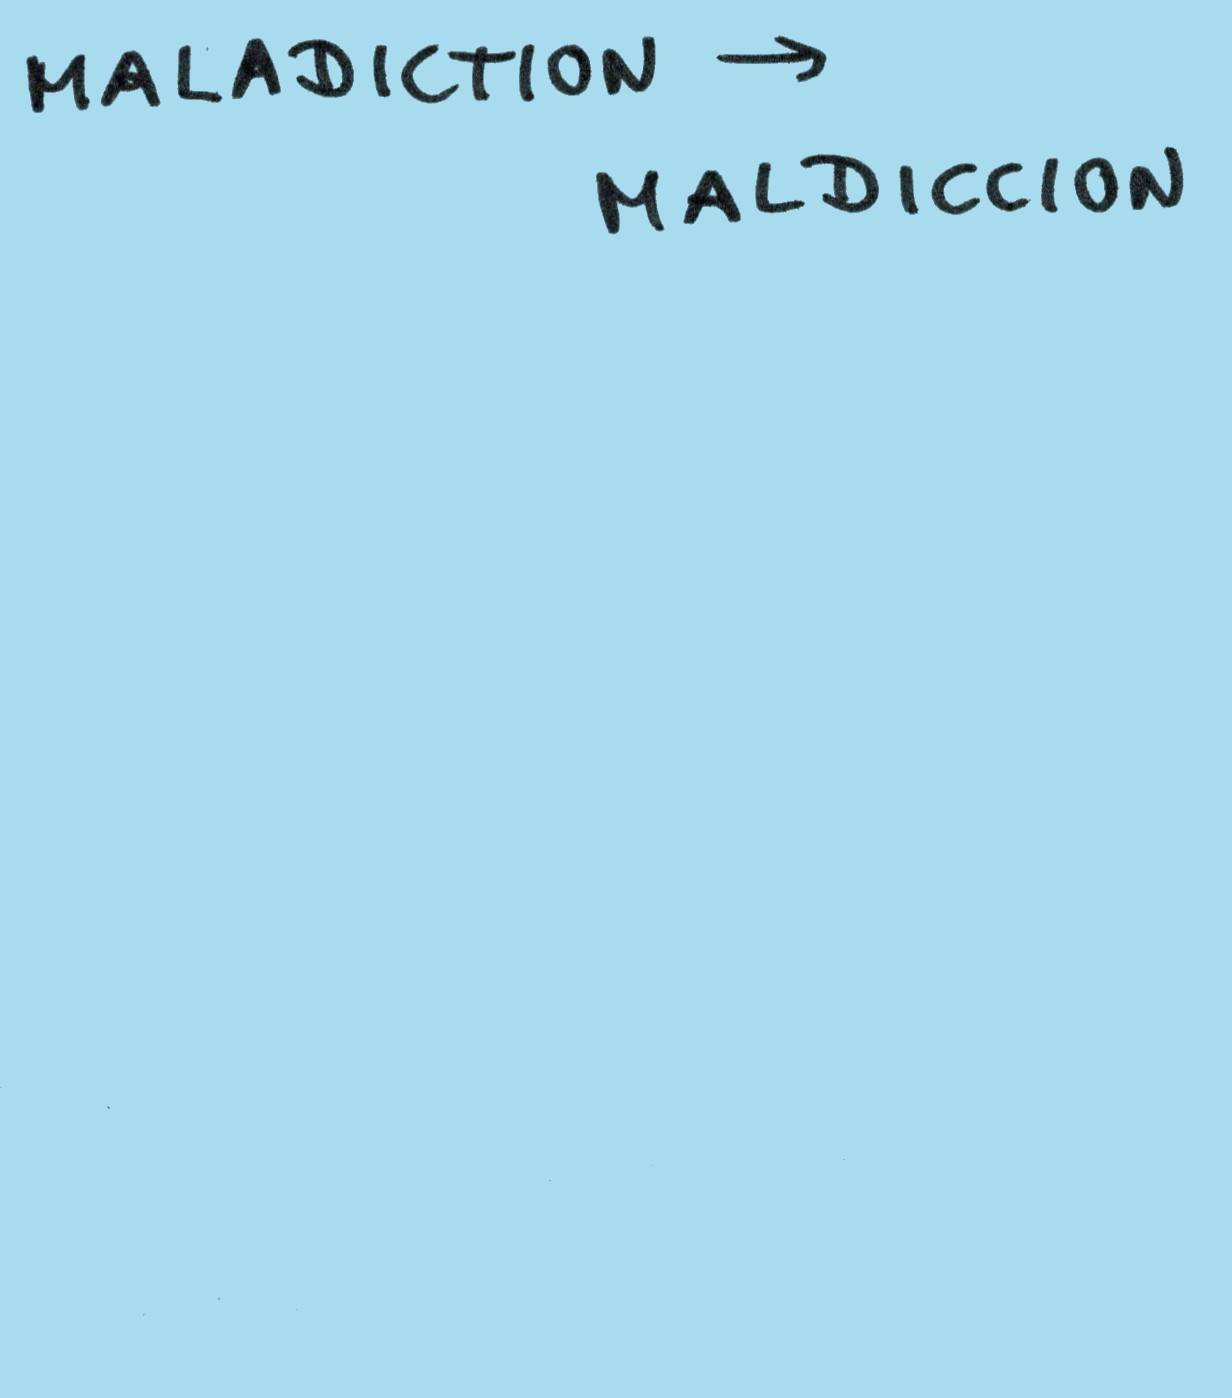 MALADICTION →
MALDICCION